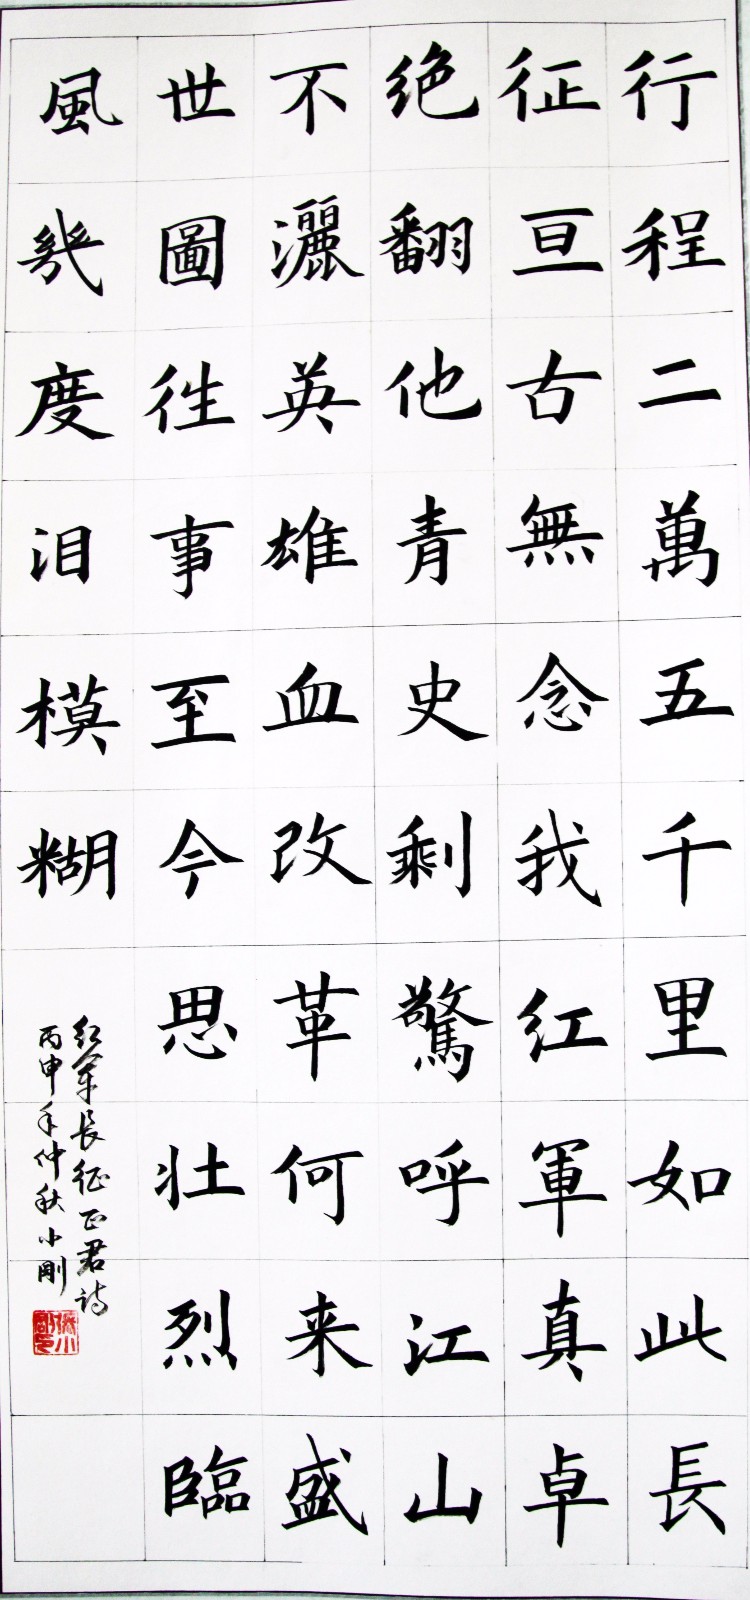 行程二萬五千里如此長
征亘古無念我紅軍真卓
绝翻他青史剩驚呼江山
不灑英雄血改革何来盛
世圖徃事至今思壮烈臨
風幾度泪模糊
红军長征正君诗
丙申年仲秋小剛